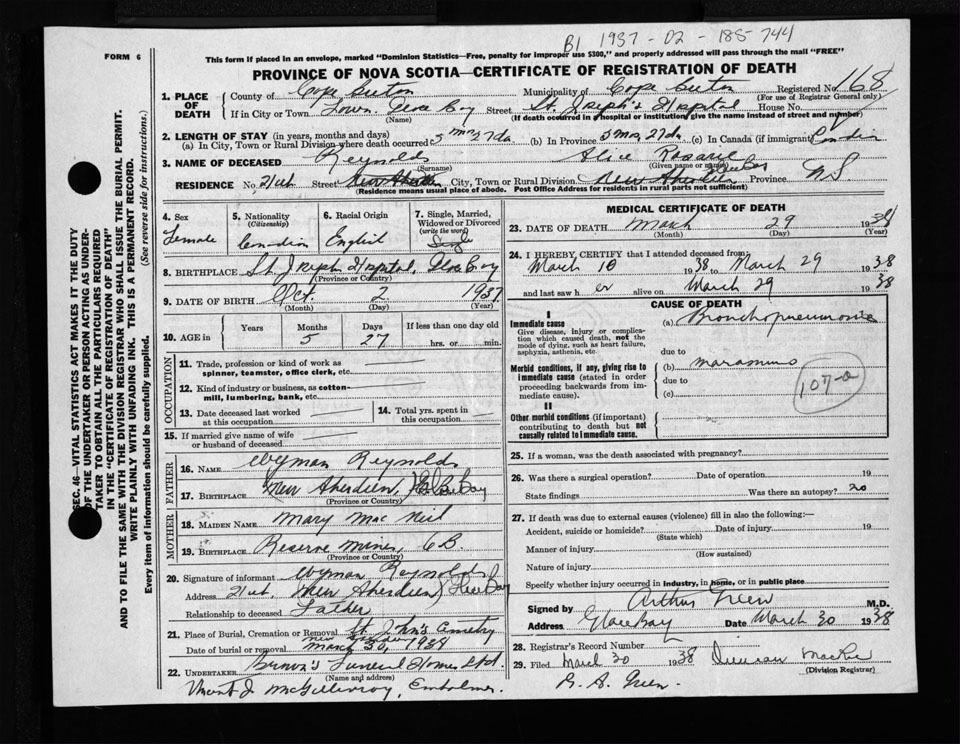 B1 1937 - 02 - 185 - 744
FORM 6
This form if placed in an envelope, marked "Dominion Statistics—Free, penalty for improper use $300," and properly addressed will pass through the mail "FREE"
PROVINCE OF NOVA SCOTIA—CERTIFICATE OF REGISTRATION OF DEATH
1. PLACE OF DEATH
County of Cape Breton Municipality of Cape Breton Registered No. 168
(For use of Registrar General only)
If in City or Town Town Glace Bay Street St. Joseph's Hospital House No.
(Name) (If death occurred in a hospital or institution, give the name instead of street and number)
2. LENGTH OF STAY (in years, months and days)
(a) In City, Town or Rural Division where death occurred 5 mos 27 da (b) In Province 5 mos, 27 da. (c) In Canada (if immigrant)
3. NAME OF DECEASED Reynolds Alice
(Surname) (Given name or names)
RESIDENCE No. 21 ub Street New Aberdeen City, Town or Rural Division New Aberdeen Province NS
(Residence means usual place of abode. Post Office Address for residents in rural parts not sufficient)
SEC. 46—VITAL STATISTICS ACT MAKES IT THE DUTY
OF THE UNDERTAKER OR PERSON ACTING AS UNDER-
TAKER TO OBTAIN ALL THE PARTICULARS REQUIRED
IN THE "CERTIFICATE OF REGISTRATION OF DEATH"
AND TO FILE THE SAME WITH THE DIVISION REGISTRAR WHO SHALL ISSUE THE BURIAL PERMIT.
WRITE PLAINLY WITH UNFADING INK. THIS IS A PERMANENT RECORD.
Every item of Information should be carefully supplied. (See reverse side for instructions.)
4. Sex
Female
5. Nationality
(Citizenship)
Canadian
6. Racial Origin
English
7. Single, Married, Widowed or Divorced
(write the word)
Single
8. BIRTHPLACE St. Joseph Hospital, Glace Bay
(Province or Country)
9. DATE OF BIRTH Oct. 2 1937
(Month) (Day) (Year)
10. AGE in Years Months Days If less than one day old
5 27 hrs. or min.
OCCUPATION
11. Trade, profession or kind of work as
spinner, teamster, office clerk, etc.
12. Kind of industry or business, as cotton-
mill, lumbering, bank, etc.
13. Date deceased last worked
at this occupation
14. Total yrs. spent in
this occupation
15. If married give name of wife
or husband of deceased
FATHER
16. NAME Wyman Reynolds
17. BIRTHPLACE New Aberdeen, Glace Bay
(Province or Country)
MOTHER
18. MAIDEN NAME Mary Mac Neil
19. BIRTHPLACE Reserve Mines, CB.
(Province or Country)
20. Signature of informant Wyman Reynolds
Address 21 ub. New Aberdeen, Glace Bay
Relationship to deceased Father
21. Place of Burial, Cremation or Removal St John's Cemetry
New Aberdeen
Date of burial or removal March 30, 1938
22. UNDERTAKER Brown's Funeral Home Ltd.
(Name and address)
Vincent J. McGillivray, Embalmer.
MEDICAL CERTIFICATE OF DEATH
23. DATE OF DEATH March 29 1938
(Month) (Day) (Year)
24. I HEREBY CERTIFY that I attended deceased from
March 10 1938 to March 29 1938
and last saw h er alive on March 29 1938
CAUSE OF DEATH
I
Immediate cause
Give disease, injury or complica-
tion which caused death, not the
mode of dying, such as heart failure,
asphyxia, asthenia, etc.
(a) Bronchopneumonia
due to
Morbid conditions, if any, giving rise to
immediate cause (stated in order
proceeding backwards from im-
mediate cause).
(b) marasmus
due to
(c)
107-a
II
Other morbid conditions (if important)
contributing to death but not
causally related to Immediate cause.
25. If a woman, was the death associated with pregnancy?
26. Was there a surgical operation? Date of operation 19
State findings Was there an autopsy? no
27. If death was due to external causes (violence) fill in also the following:
Accident, suicide or homicide? Date of injury 19
(State which)
Manner of injury
(How sustained)
Nature of injury
Specify whether injury occurred in industry, in home, or in public place
Signed by Arthur Green M.D.
Address Glace Bay Date March 30 1938
28. Registrar's Record Number
29. Filed March 30 1938 Duncan MacRae
(Division Registrar)